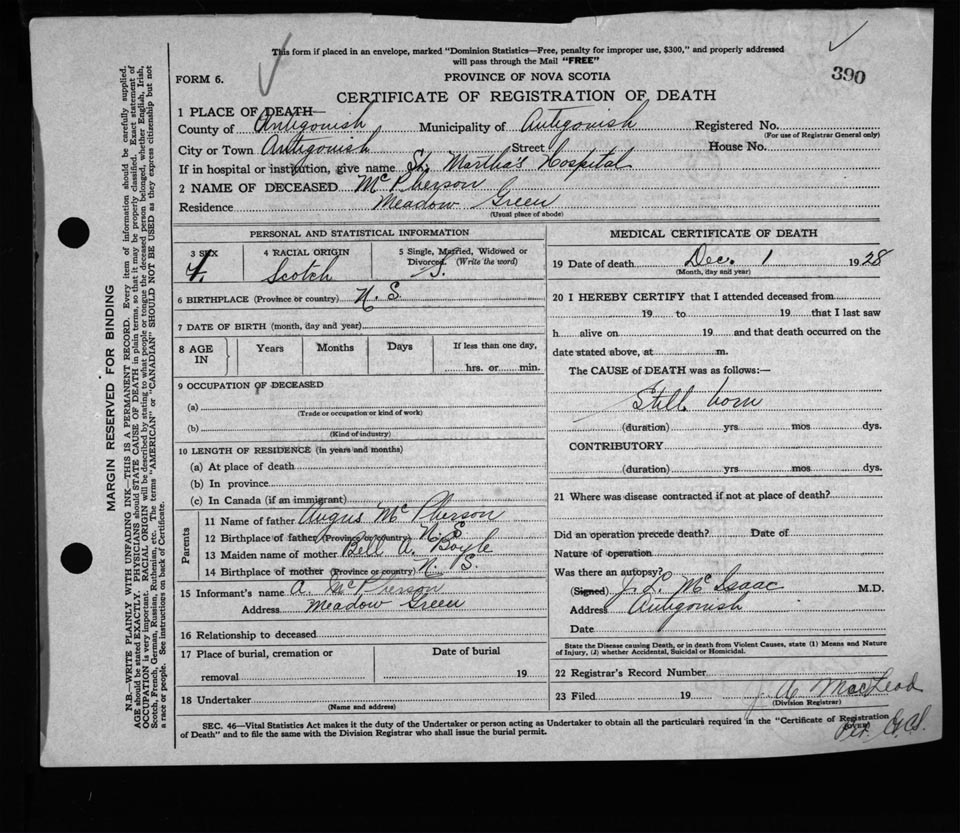 This form if placed in an envelope, marked "Dominion Statistics—Free, penalty for improper use, $300," and properly addressed
will pass through the Mail "FREE"
390
FORM 6.
PROVINCE OF NOVA SCOTIA
CERTIFICATE OF REGISTRATION OF DEATH
1 PLACE OF DEATH—
County of Antigonish Municipality of Antigonish Registered No.
(For use of Registrar General only)
City or Town Antigonish Street House No.
If in hospital or institution, give name St. Martha's Hospital
2 NAME OF DECEASED McPherson
Residence Meadow Green
(Usual place of abode)
PERSONAL AND STATISTICAL INFORMATION
3 SEX 4 RACIAL ORIGIN 5 Single, Married, Widowed or
Divorced. (Write the word)
f. Scotch S.
6 BIRTHPLACE (Province or country) N. S.
7 DATE OF BIRTH (month, day and year)
8 AGE IN Years Months Days If less than one day,
hrs. or min.
9 OCCUPATION OF DECEASED
(a)
(Trade or occupation or kind of work)
(b)
(Kind of industry)
10 LENGTH OF RESIDENCE (in years and months)
(a) At place of death
(b) In province
(c) In Canada (if an immigrant)
Parents
11 Name of father Angus McPherson
12 Birthplace of father (Province or country) N. S.
13 Maiden name of mother Bell A. Boyle
14 Birthplace of mother (Province or country) N. S.
15 Informant's name A. McPherson
Address Meadow Green
16 Relationship to deceased
17 Place of burial, cremation or
removal
Date of burial
19
18 Undertaker
(Name and address)
MEDICAL CERTIFICATE OF DEATH
19 Date of death Dec. 1 1928
(Month, day and year)
20 I HEREBY CERTIFY that I attended deceased from
19 to 19 that I last saw
h alive on 19 and that death occurred on the
date stated above, at m.
The CAUSE of DEATH was as follows:—
Still born
(duration) yrs mos dys.
CONTRIBUTORY
(duration) yrs mos dys.
21 Where was disease contracted if not at place of death?
Did an operation precede death? Date of
Nature of operation
Was there an autopsy?
(Signed) J. L. McIsaac M.D.
Address Antigonish
Date
State the Disease causing Death, or in death from Violent Causes, state (1) Means and Nature
of Injury, (2) whether Accidental, Suicidal or Homicidal.
22 Registrar's Record Number
23 Filed 19 J. A. MacLeod
(Division Registrar)
SEC. 46—Vital Statistics Act makes it the duty of the Undertaker or person acting as Undertaker to obtain all the particulars required in the "Certificate of Registration
of Death" and to file the same with the Division Registrar who shall issue the burial permit.
(OVER)
Per.
MARGIN RESERVED FOR BINDING
N.B.—WRITE PLAINLY WITH UNFADING INK—THIS IS A PERMANENT RECORD. Every item of information should be carefully supplied.
AGE should be stated EXACTLY. PHYSICIANS should STATE CAUSE OF DEATH in plain terms, so that it may be properly classified. Exact statement of
OCCUPATION is very important. RACIAL ORIGIN will be described by stating to what people or tongue the deceased person belonged, whether English, Irish,
Scotch, French, German, Russian, Ruthenian, etc. The terms "AMERICAN" or "CANADIAN" SHOULD NOT BE USED as they express citizenship but not
a race or people. See instructions on back of Certificate.